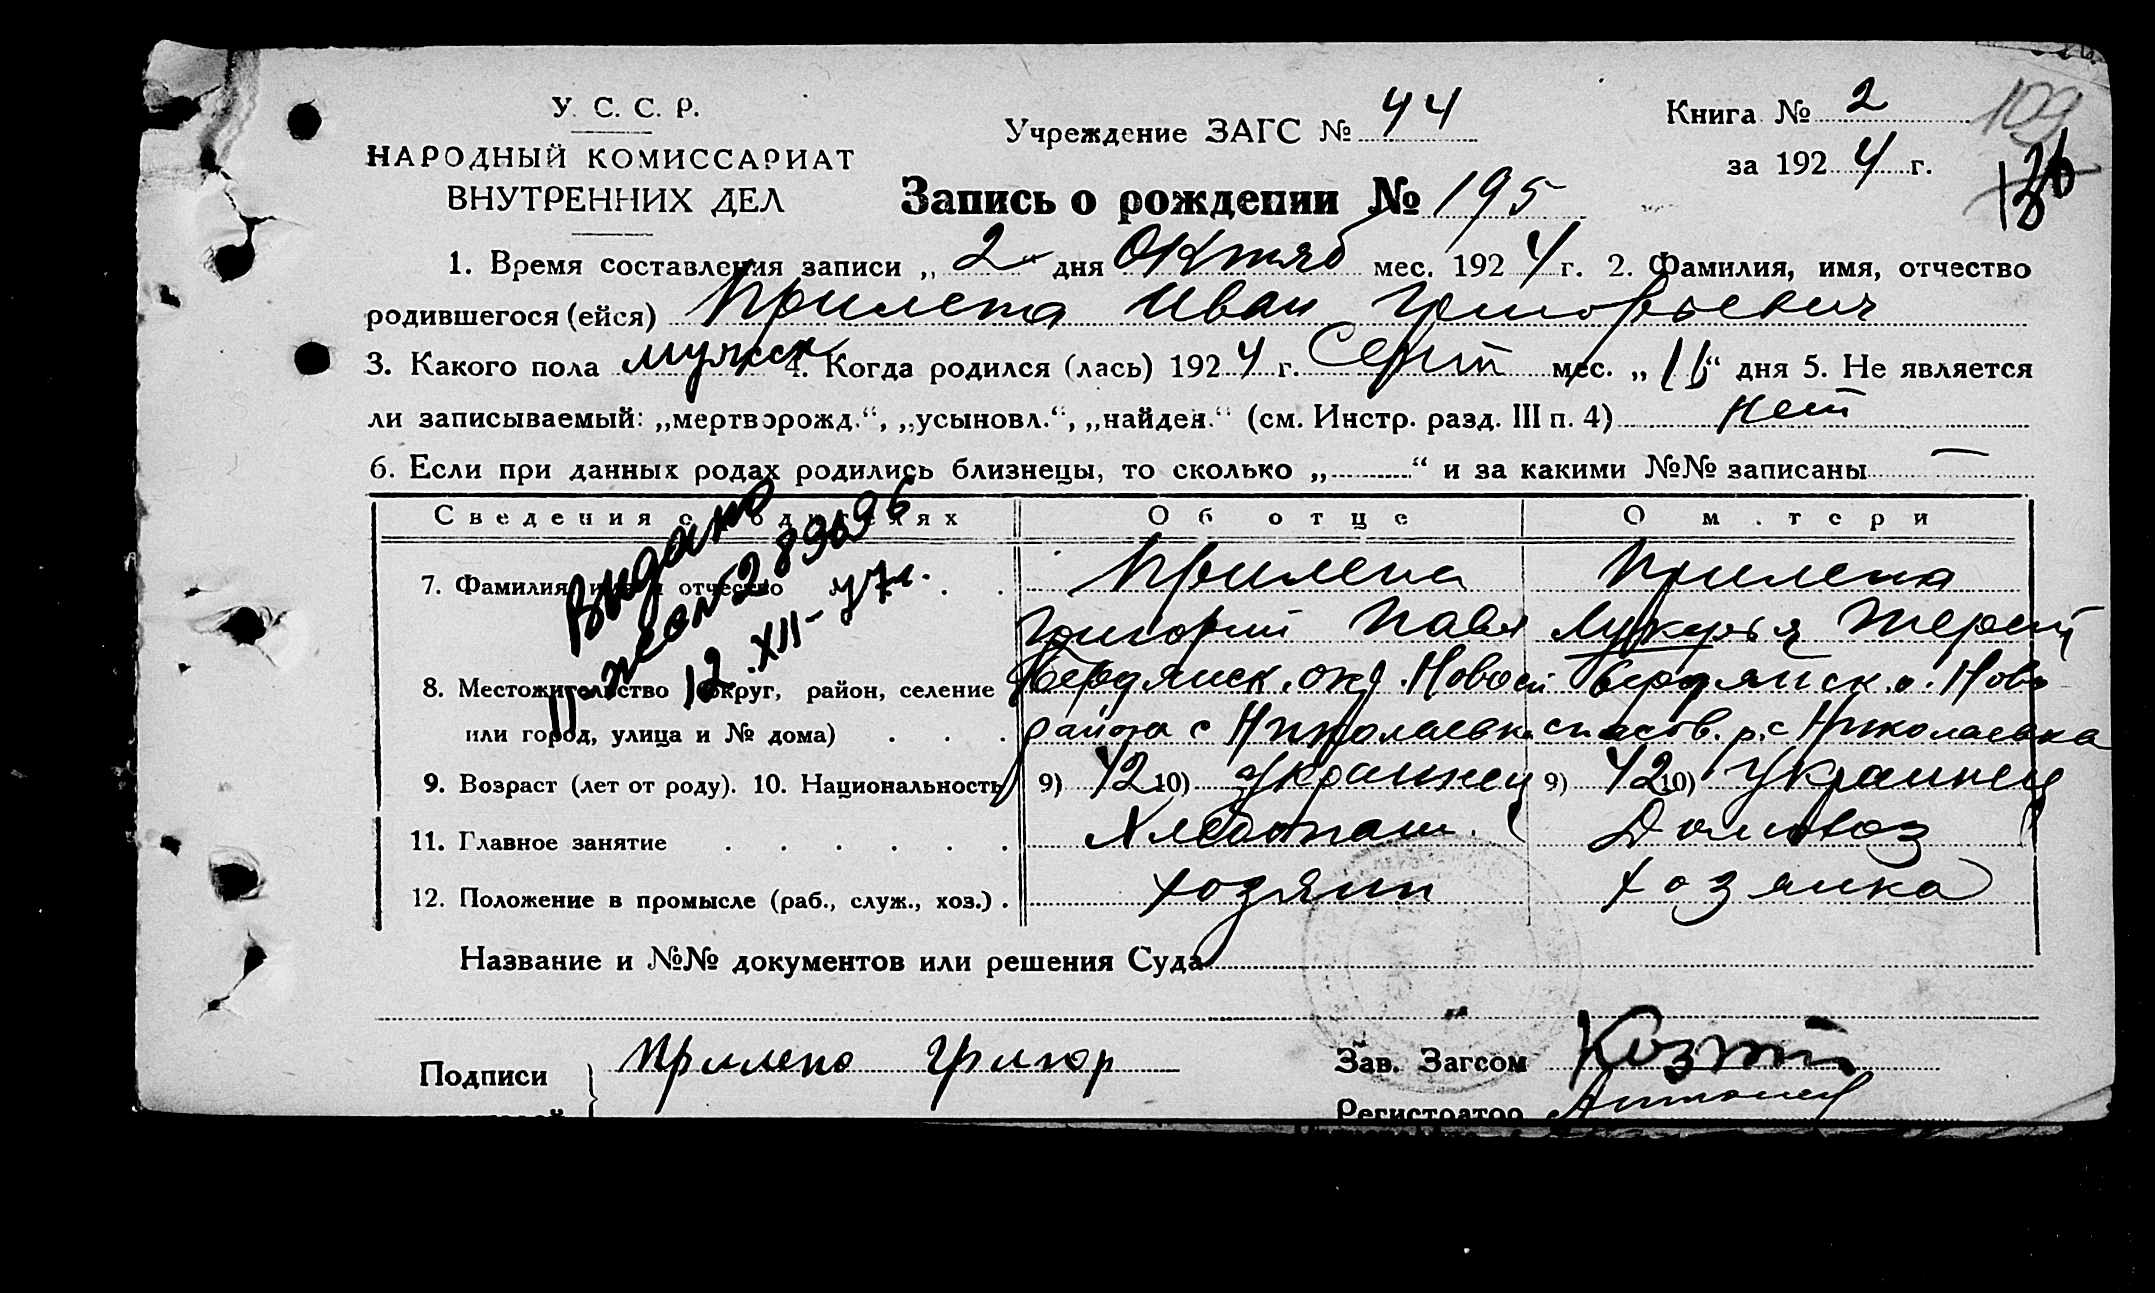 У. С. С. Р.
НАРОДНЫЙ КОМИССАРИАТ
ВНУТРЕННИХ ДЕЛ
Учреждение ЗАГС № 44
Книга № 2
109
за 1924 г.
Запись о рождении № 195
1. Время составления записи „2“ дня Октяб мес. 1924 г. 2. Фамилия, имя, отчество
родившегося (ейся) Прилепа Иван Григорьевич
3. Какого пола мужск 4. Когда родился (лась) 1924 г. Сент мес. „16“ дня 5. Не является
ли записываемый: „мертворожд.“, „усыновл.“, „найден.“ (см. Инстр. разд. III п. 4) нет
6. Если при данных родах родились близнецы, то сколько „..........“ и за какими №№ записаны —
Сведения о родителях Об отце О матери
7. Фамилия, имя и отчество Прилепа Прилепа
Григорий Павл Лукерья Терент
8. Местожительство (округ, район, селение Бердянск. окр. Новосп Бердянск. о. Ново
или город, улица и № дома) района с Николаевк спасов. р. с Николаевка
9. Возраст (лет от роду). 10. Национальность 9) 42 10) украинец 9) 42 10) украинец
11. Главное занятие Хлебопаш. Домохоз
12. Положение в промысле (раб., служ., хоз.) хозяин хозяйка
Видано
289696
12.XII-77г.
Название и №№ документов или решения Суда
Подписи Прилепа Григор
Зав. Загсом
Регистратор